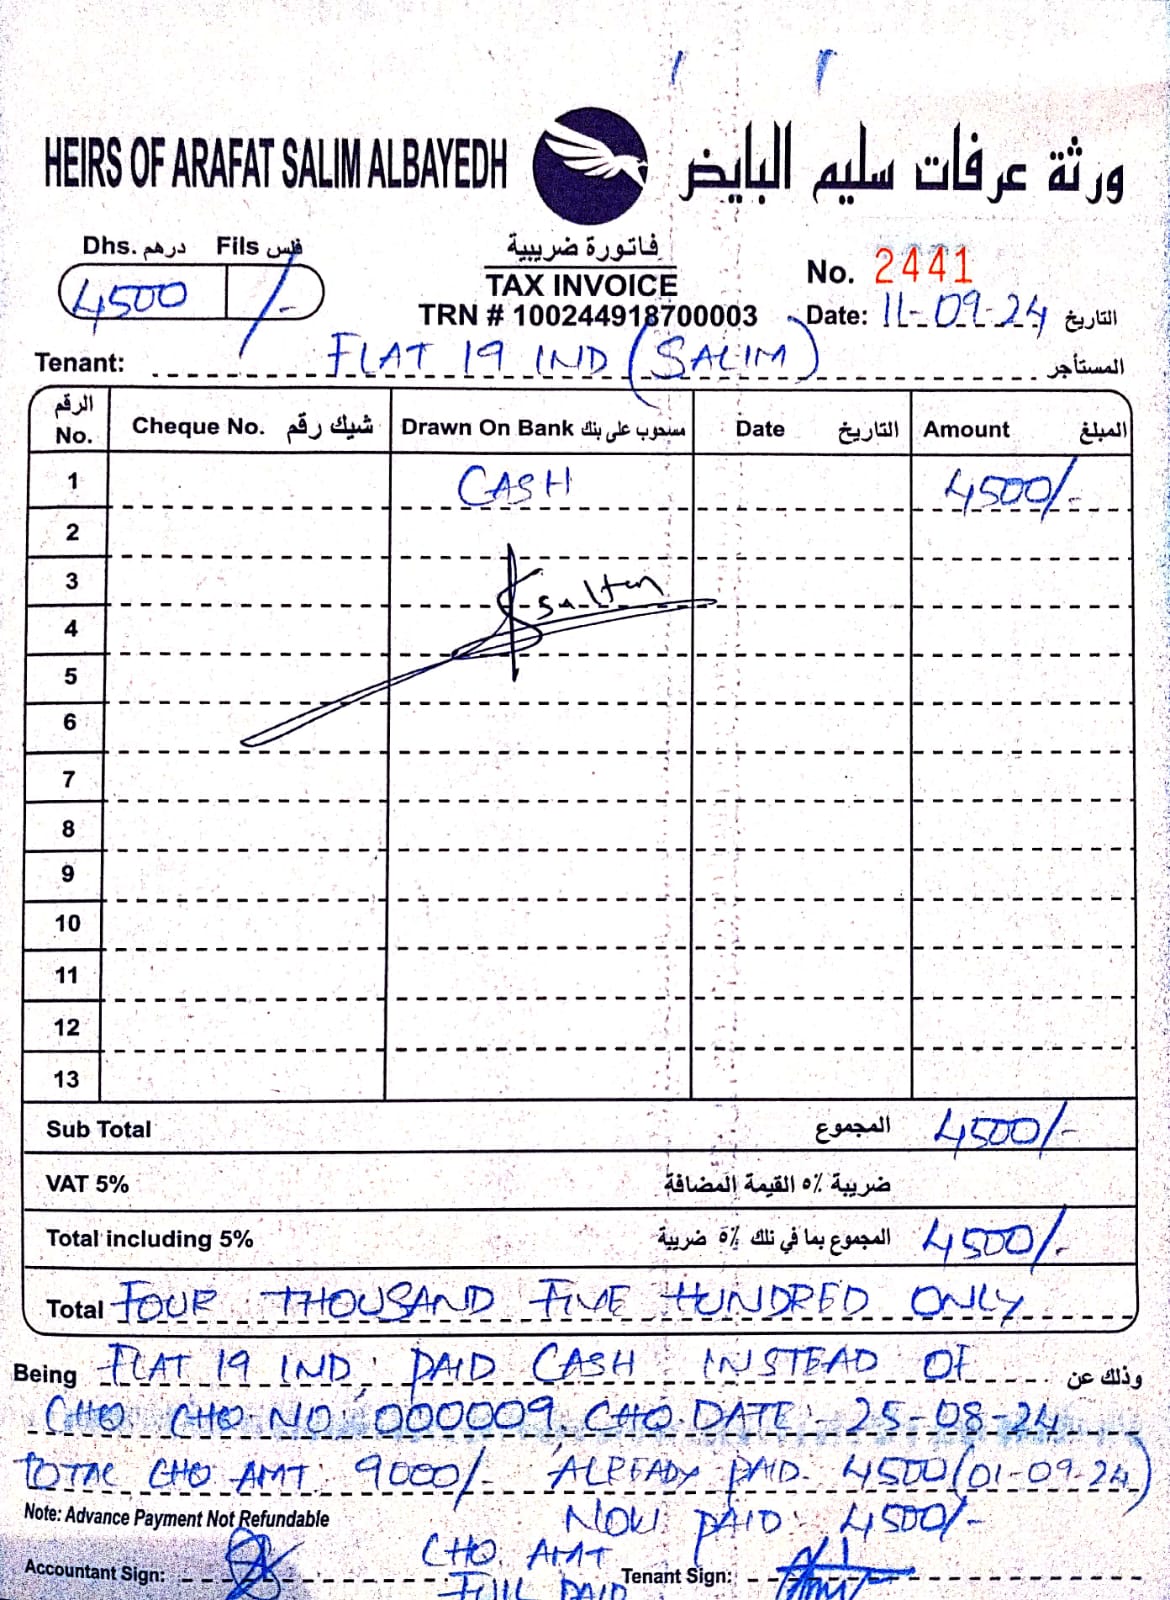 HEIRS OF ARAFAT SALIM ALBAYEDH ورثة عرفات سليم البايض
Dhs. درهم Fils فلس
4500 /-
فاتورة ضريبية
TAX INVOICE
TRN # 100244918700003
No. 2441
Date: 11-09-24 التاريخ
Tenant: FLAT 19 IND (SALIM) المستأجر
الرقم No. Cheque No. شيك رقم Drawn On Bank مسحوب على بنك Date التاريخ Amount المبلغ
1 CASH 4500/-
2
3 Salten
4
5
6
7
8
9
10
11
12
13
Sub Total المجموع 4500/-
VAT 5% ضريبة ٥% القيمة المضافة
Total including 5% المجموع بما في تلك ٥% ضريبة 4500/-
Total FOUR THOUSAND FIVE HUNDRED ONLY
Being FLAT 19 IND, PAID CASH INSTEAD OF وذلك عن
CHQ. CHQ NO: 000009, CHQ. DATE:- 25-08-24
TOTAL CHQ AMT: 9000/- ALREADY PAID 4500 (01-09-24)
Note: Advance Payment Not Refundable NOW PAID: 4500/-
CHQ. AMT
FULL PAID
Accountant Sign: Tenant Sign: